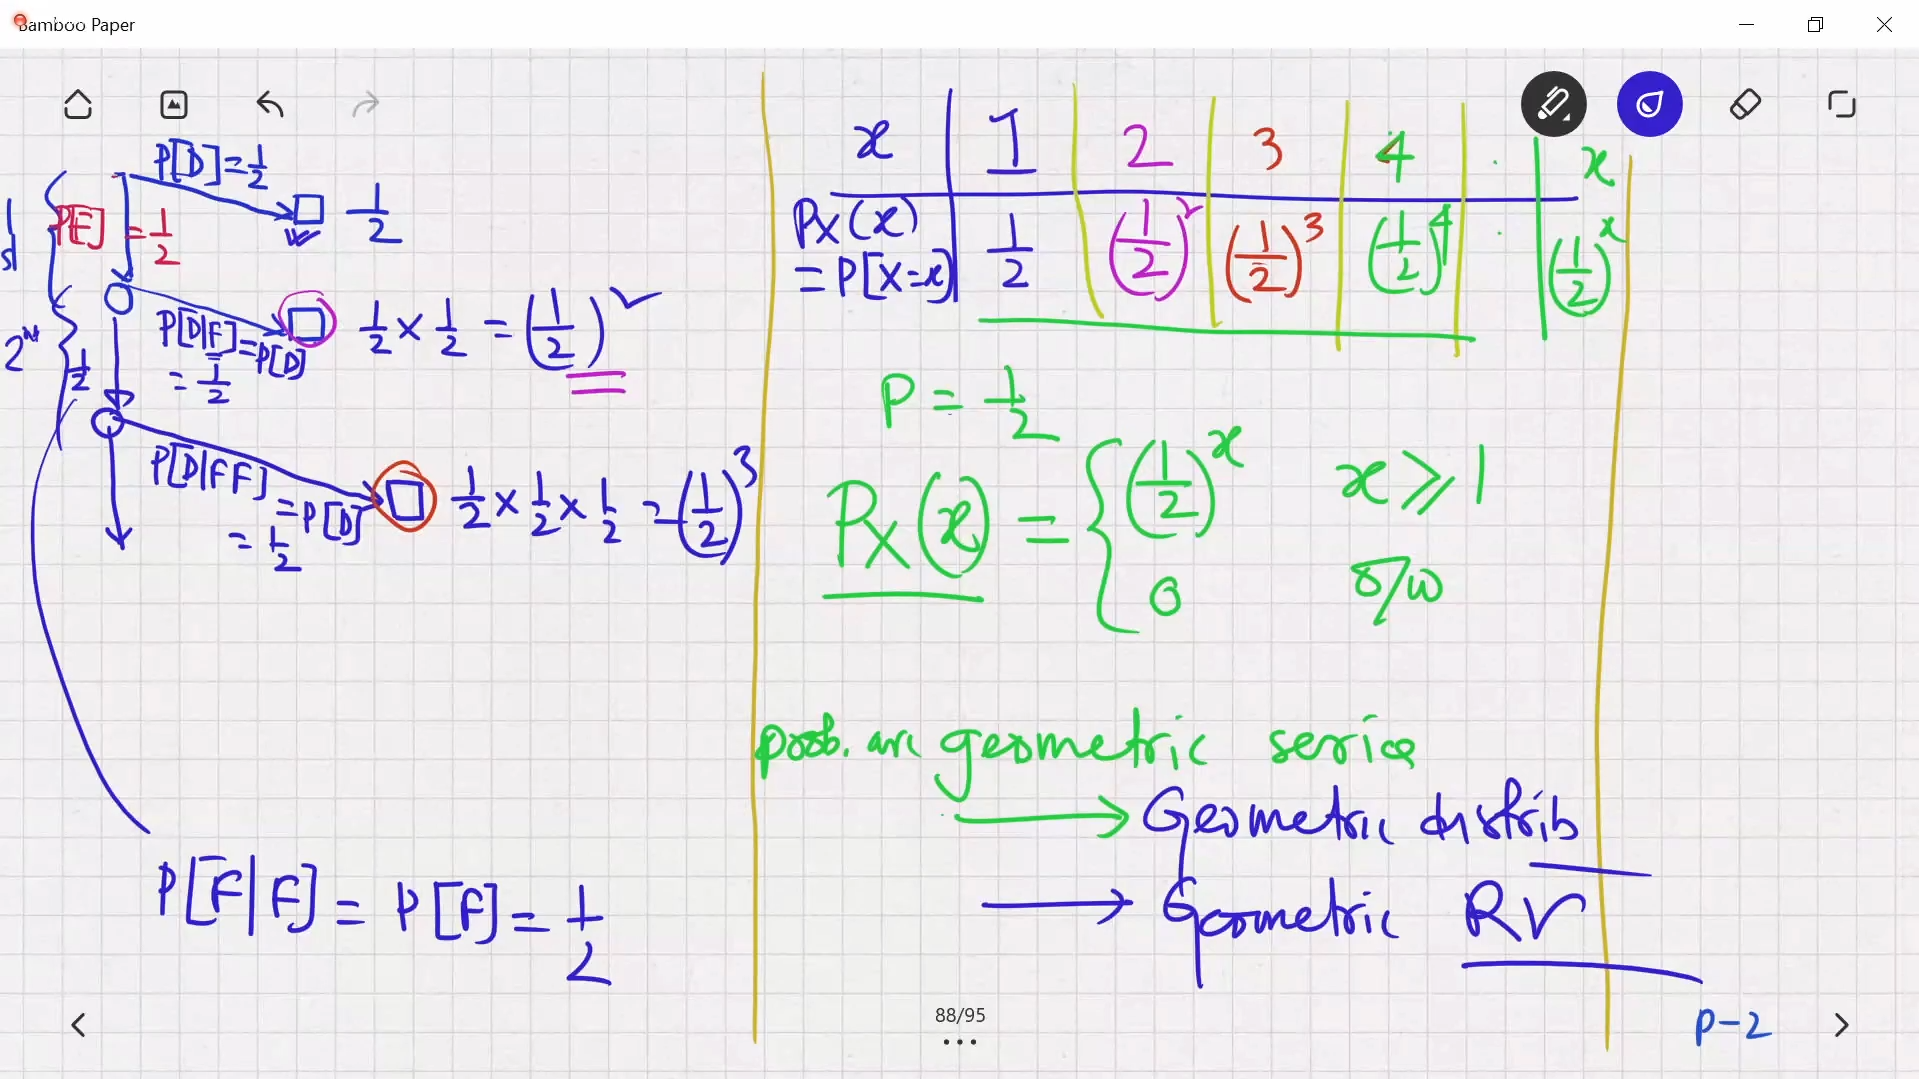 Bamboo Paper
P[D] = 1/2
1/2
1st
P[F] = 1/2
2nd
1/2
P[D|F] = P[D]
= 1/2
1/2 × 1/2 = (1/2)²
P[D|FF]
= P[D]
= 1/2
1/2 × 1/2 × 1/2 = (1/2)³
P[F|F] = P[F] = 1/2
x 1 2 3 4 . x
Px(x) 1/2 (1/2)² (1/2)³ (1/2)⁴ . (1/2)ˣ
= P[X=x]
P = 1/2
Px(x) = { (1/2)ˣ x ⩾ 1
0 o/w
prob. are geometric series
→ Geometric distrib
→ Geometric RV
88/95
P-2